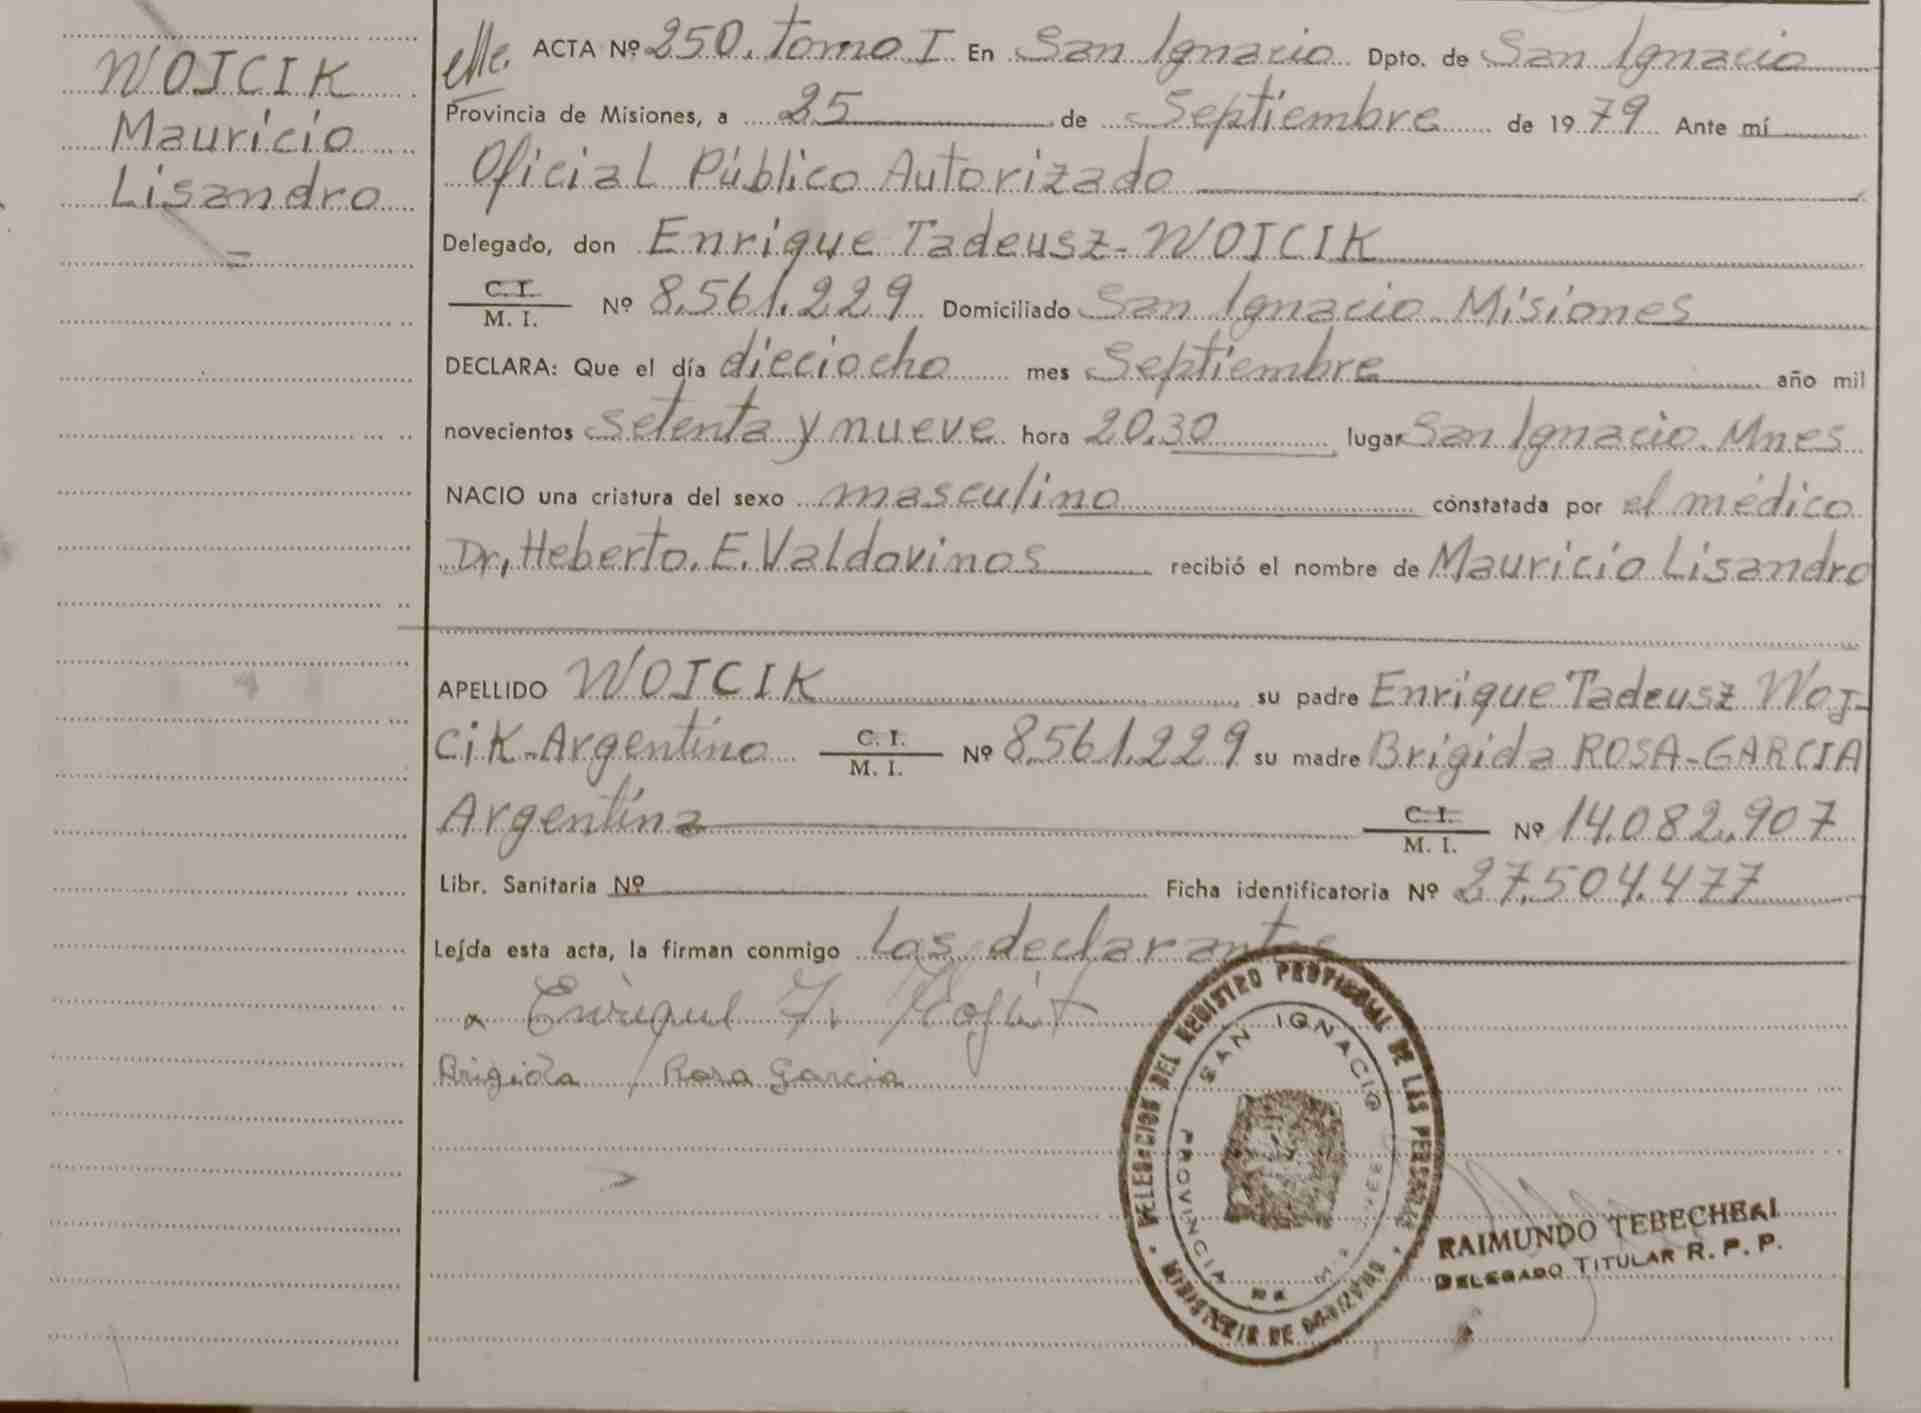 WOJCIK
Mauricio
Lisandro
ACTA Nº 250. tomo I En San Ignacio Dpto. de San Ignacio
Provincia de Misiones, a 25 de Septiembre de 1979 Ante mí
Oficial Público Autorizado
Delegado, don Enrique Tadeusz-WOJCIK
C. I.
M. I. Nº 8.561.229 Domiciliado San Ignacio Misiones
DECLARA: Que el día dieciocho mes Septiembre año mil
novecientos setenta y nueve hora 20.30 lugar San Ignacio. Mnes
NACIO una criatura del sexo masculino constatada por el médico
Dr, Heberto. E. Valdovinos recibió el nombre de Mauricio Lisandro
APELLIDO WOJCIK su padre Enrique Tadeusz Woj-
cik-Argentino C. I. M. I. Nº 8.561.229 su madre Brigida ROSA-GARCIA
Argentina C. I. M. I. Nº 14.082.907
Libr. Sanitaria Nº Ficha identificatoria Nº 27.504.477
Leída esta acta, la firman conmigo los declarantes
Enrique T.
Brigida Rosa Garcia
DELEGACION DEL REGISTRO PROVINCIAL DE LAS PERSONAS
MINISTERIO DE GOBIERNO
SAN IGNACIO
PROVINCIA DE
RAIMUNDO TEBECHERI
DELEGADO TITULAR R. P. P.